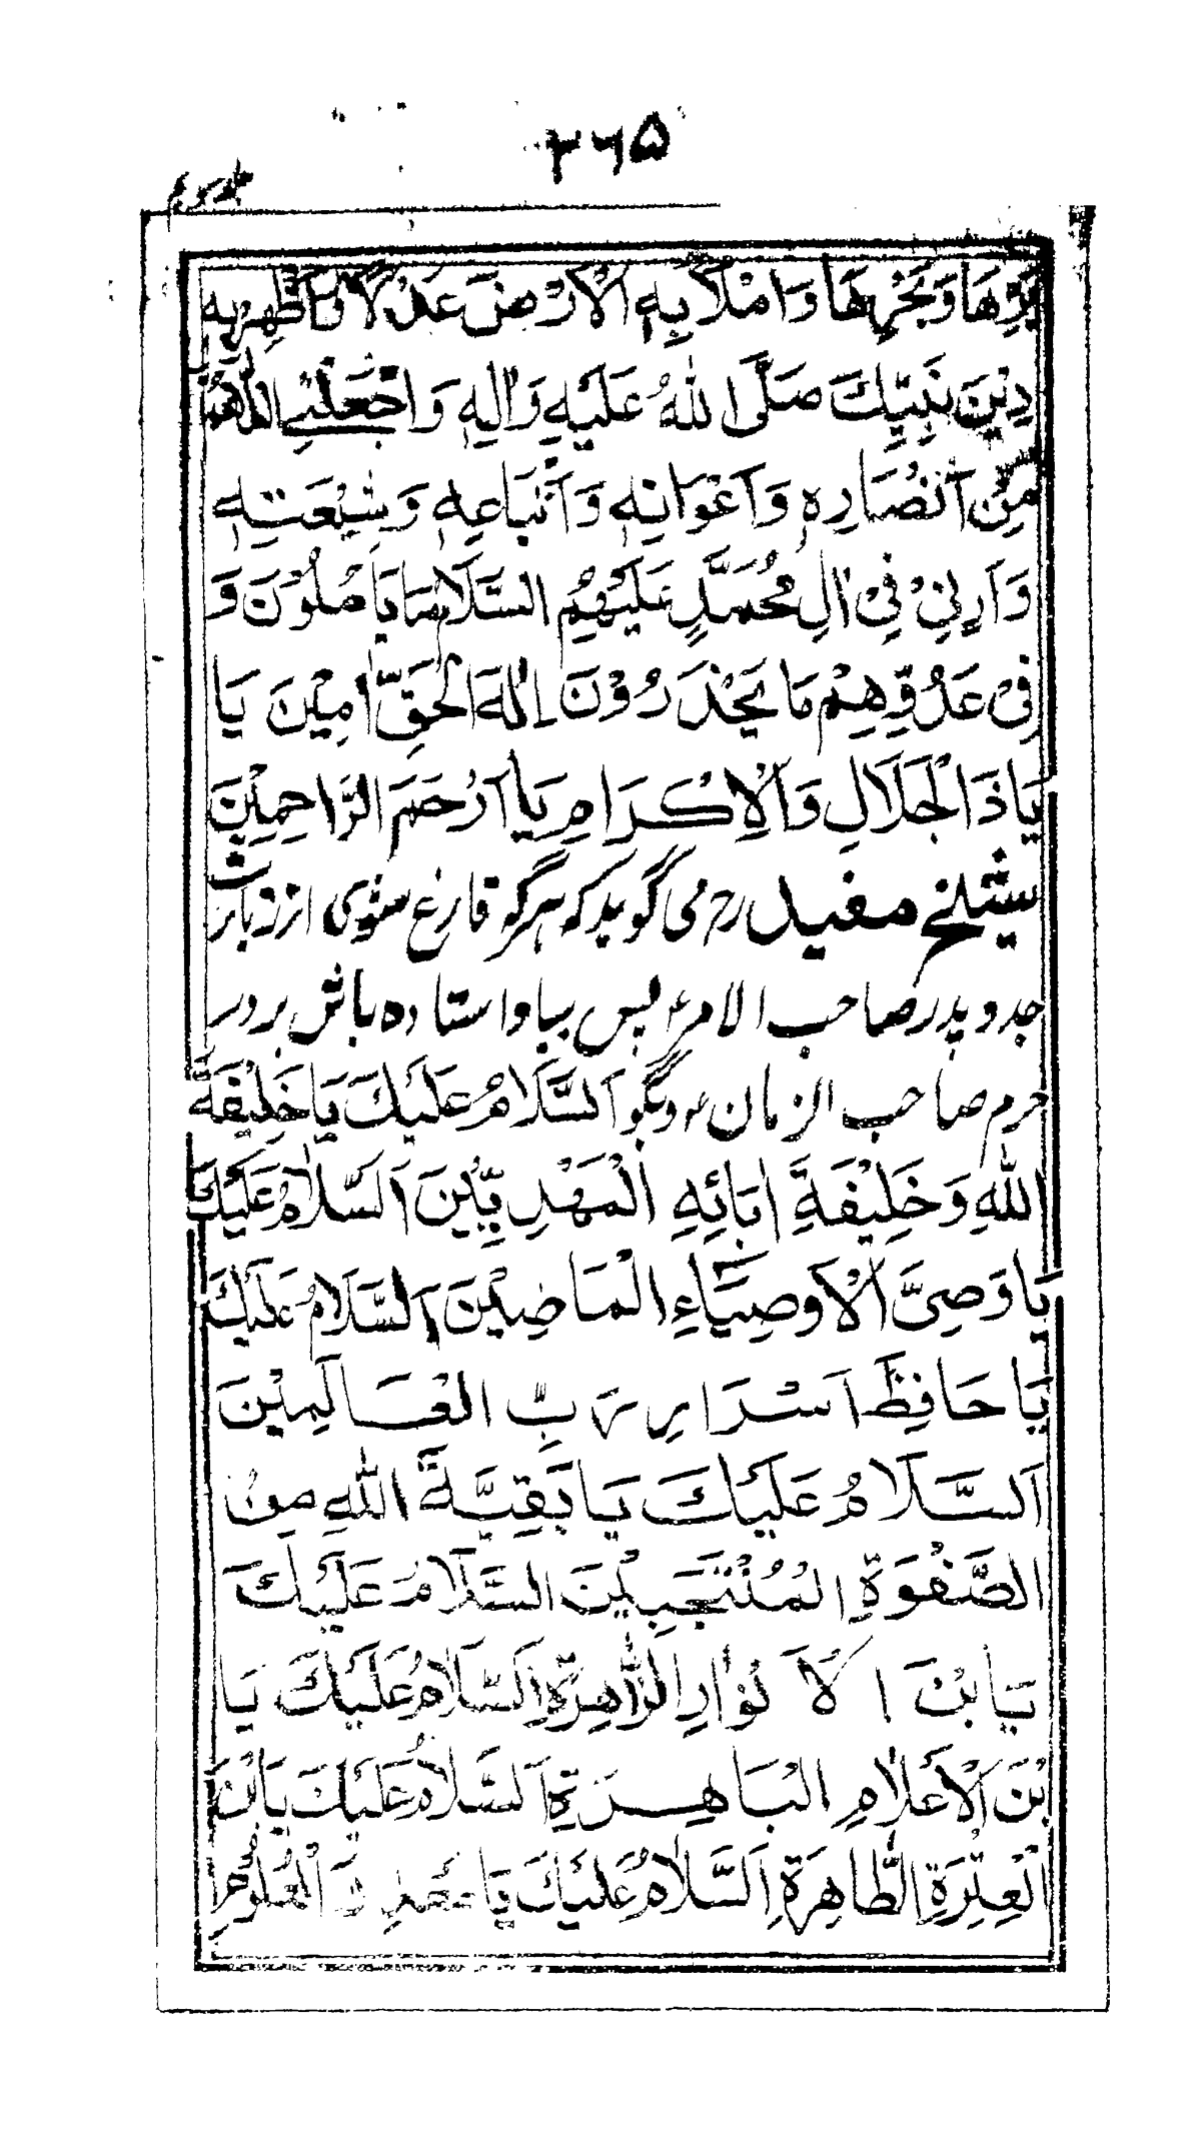 ۲۶۵
جلد سوم
بَرِّهَا وَبَحْرِهَا وَامْلَأْ بِهِ الْاَرْضَ عَدْلًا وَاَظْهِرْ بِهِ
دِيْنَ نَبِيِّكَ صَلَّى اللهُ عَلَيْهِ وَاٰلِهٖ وَاجْعَلْنِيْ اللّٰهُمَّ
مِنْ اَنْصَارِهٖ وَاَعْوَانِهٖ وَاَتْبَاعِهٖ وَشِيْعَتِهٖ
وَاَرِنِيْ فِيْ اٰلِ مُحَمَّدٍ عَلَيْهِمُ السَّلَامُ مَا يَأْمُلُوْنَ وَ
فِيْ عَدُوِّهِمْ مَا يَحْذَرُوْنَ اِلٰهَ الْحَقِّ اٰمِيْنَ يَا
يَاذَا الْجَلَالِ وَالْاِكْرَامِ يَا اَرْحَمَ الرَّاحِمِيْنَ
شیخ مفید رح می گوید که هرگه فارغ شوی از زیارت
جد و پدر صاحب الامر ع پس بیا و استاده باش بر در
حرم صاحب الزمان ع و بگو اَلسَّلَامُ عَلَيْكَ يَا خَلِيْفَةَ
اللهِ وَخَلِيْفَةَ اٰبَائِهِ الْمَهْدِيِّيْنَ اَلسَّلَامُ عَلَيْكَ
يَا وَصِيَّ الْاَوْصِيَاءِ الْمَاضِيْنَ اَلسَّلَامُ عَلَيْكَ
يَا حَافِظَ اَسْرَارِ رَبِّ الْعَالَمِيْنَ
اَلسَّلَامُ عَلَيْكَ يَا بَقِيَّةَ اللهِ مِنَ
الصَّفْوَةِ الْمُنْتَجَبِيْنَ اَلسَّلَامُ عَلَيْكَ
يَا بْنَ الْاَنْوَارِ الزَّاهِرَةِ اَلسَّلَامُ عَلَيْكَ يَا
بْنَ الْاَعْلَامِ الْبَاهِرَةِ اَلسَّلَامُ عَلَيْكَ يَابْنَ
الْعِتْرَةِ الطَّاهِرَةِ اَلسَّلَامُ عَلَيْكَ يَا مَعْدِنَ الْعُلُوْمِ